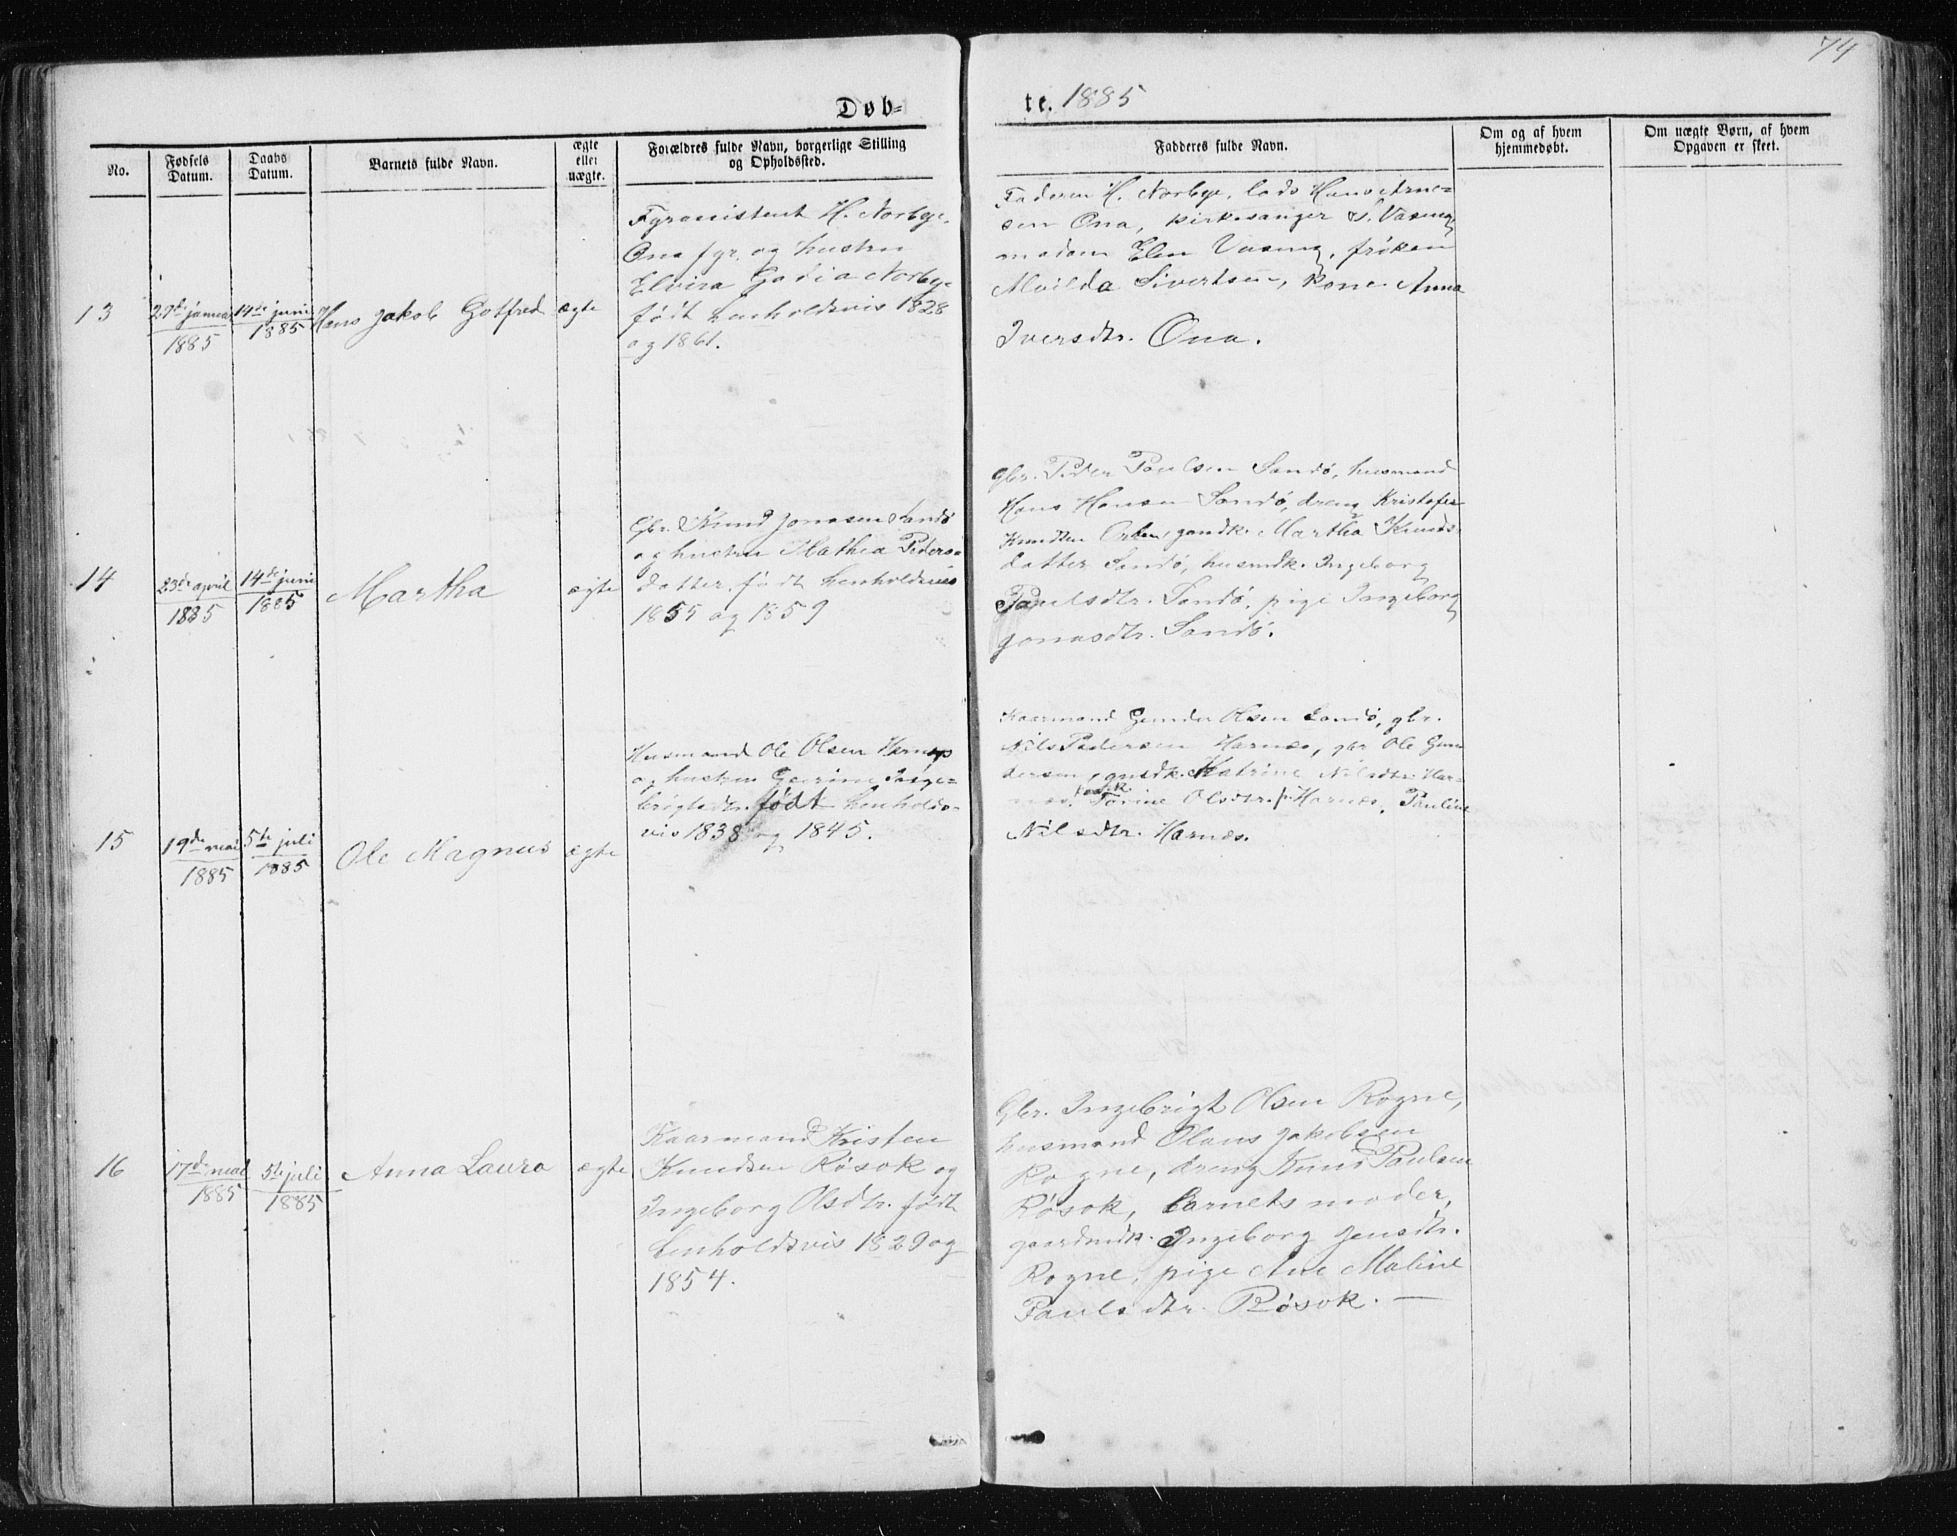 74
Døb-
te. 1885
No.
Fødsels
Datum.
Daabs
Datum.
Barnets fulde Navn.
ægte
eller
uægte.
Forældres fulde Navn, borgerlige Stilling
og Opholdssted.
Fadderes fulde Navn.
Om og af hvem
hjemmedøbt.
Om uægte Børn, af hvem
Opgaven er skeet.
13
27de januar
1885
14de juni
1885
Hans Jakob Gotfred
ægte
Fyrassistent H. Norbye
Ona fyr. og hustru
Elvira Norbye
født henholdsvis 1828
og 1861.
Faderen H. Norbye, lods Hans Arne-
sen Ona, kirkesanger S. Vaseng
madam Elen Vaseng, frøken
Alvilda Sivertsen, kone Anna
Iversdtr. Ona.
14
23de april
1885
14de juni
1885
Martha
ægte
Gbr. Knud Jonasen Sandø
og hustru Mathea Peders-
datter, født henholdsvis
1855 og 1859
Gbr. Peder Paulsen Sandø, husmand
Hans Hansen Sandø, dreng Kristofer
Knudsen Orten, gmdk. Martha Knuds-
datter Sandø, husmdk. Ingeborg
Paulsdtr. Sandø, pige Ingeborg
Jonasdtr. Sandø.
15
19de mai
1885
5te juli
1885
Ole Magnus
ægte
Husmand Ole Olsen Harnæs
og hustru Gurine Inge-
brigtsdtr. født henholds-
vis 1838 og 1845.
Kaarmand Gunder Olsen Sandø, gbr.
Nils Pedersen Harnæs, gbr Ole Gun-
dersen, gmdk. Katrine Nilsdtr. Har-
næs, Torine Olsdtr. Harnæs, Pauline
Nilsdtr. Harnæs.
16
17de mai
1885
5te juli
1885
Anna Laura
ægte
Kaarmand Kristen
Knudsen Røsok og
Ingeborg Olsdtr. født
henholdsvis 1829 og
1854.
Gbr. Ingebrigt Olsen Rogne,
husmand Olaus Jakobsen
Rogne, dreng Knud Paulsen
Røsok, barnets moder,
gaardmdk. Ingeborg Jensdtr.
Rogne, pige Ane Maline
Paulsdtr. Røsok. —